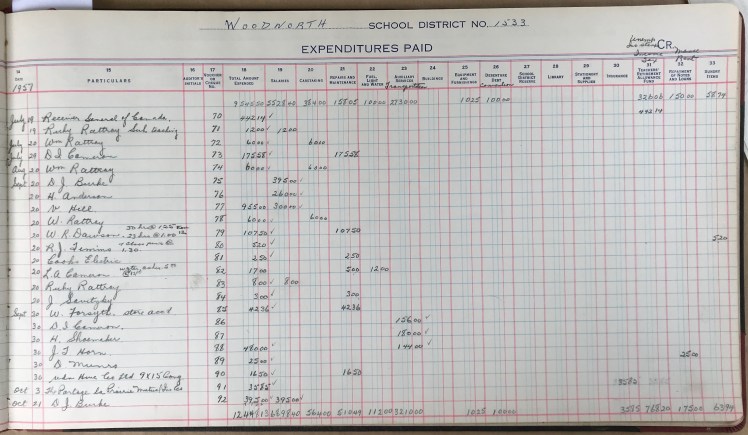 WOODNORTH SCHOOL DISTRICT NO. 1533
EXPENDITURES PAID CR.
14 15 16 17 18 19 20 21 22 23 24 25 26 27 28 29 30 31 32 33
DATE PARTICULARS AUDITOR'S INITIALS VOUCHER OR CHEQUE NO. TOTAL AMOUNT EXPENDED SALARIES CARETAKING REPAIRS AND MAINTENANCE FUEL, LIGHT AND WATER AUXILIARY SERVICES Transportation BUILDINGS EQUIPMENT AND FURNISHINGS DEBENTURE DEBT Convention SCHOOL DISTRICT RESERVE LIBRARY STATIONERY AND SUPPLIES INSURANCE TEACHERS' RETIREMENT ALLOWANCES FUND REPAYMENT OF NOTES AND LOANS SUNDRY ITEMS
1957
9545.50 5528.40 384.00 158.05 100.00 2730.00 10.25 100.00 326.06 150.00 58.74
July 19 Receiver General of Canada. 70 442.14 442.14
19 Ruby Rattray Sub teaching 71 12.00 12.00
July 20 Wm Rattray 72 60.00 60.00
July 29 D.S. Cameron 73 175.58 175.58
Aug 20 Wm Rattray 74 60.00 60.00
Sept 20 D J Burke 75 395.00
20 H. Anderson 76 260.00
20 V. Hill 77 955.00 300.00
20 W. Rattray 78 60.00 60.00
20 W R Dawson 79 107.50 107.50
20 R.J. Timms 80 5.20 5.20
20 Cooks Electric 81 2.50 2.50
20 L.A. Cameron 82 17.00 5.00 12.00
20 Ruby Rattray 83 8.00 8.00
20 J 84 3.00 3.00
Sept 20 W. Forsyth store acct 85 42.36 42.36
30 D.S. Cameron. 86 156.00
30 H. Shoemaker 87 180.00
30 J.T. Horn. 88 480.00 144.00
30 D. Munro 89 25.00 25.00
30 90 16.50 16.50
Oct 3 Portage la Prairie Mutual Ins Co 91 35.85 35.82
Oct 21 D J Burke 92 395.00 395.00
6898.40 564.00 510.49 112.00 3210.00 10.25 100.00 768.20 175.00 63.94